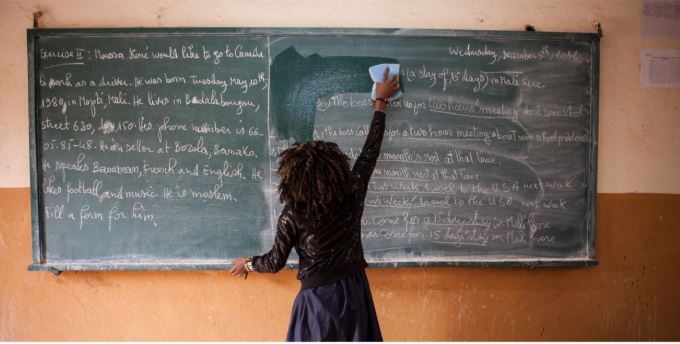 Exercise II: Moussa Koné would like to go to Canada
to work as a driver. He was born Tuesday May 10th,
1989 in Mopti, Mali. He lives in Badalabougou,
street 630, 150. His phone number is 66.
05.85-48. He is a seller at Bozola, Bamako.
He speaks Bamanan, French and English. He
likes football and music. He is moslem.
Fill a form for him.
Wednesday, December 5th,
(a stay of 15 days) in Mali here.
The boss for two hours' meeting about some school
The boss for a two hours meeting about some school problems
month's rest at that time.
month rest at that time.
two week travel to the USA next week
two weeks' travel to the USA next week
come for a 15 days stay in Mali here
come for 15 days' stay in Mali here